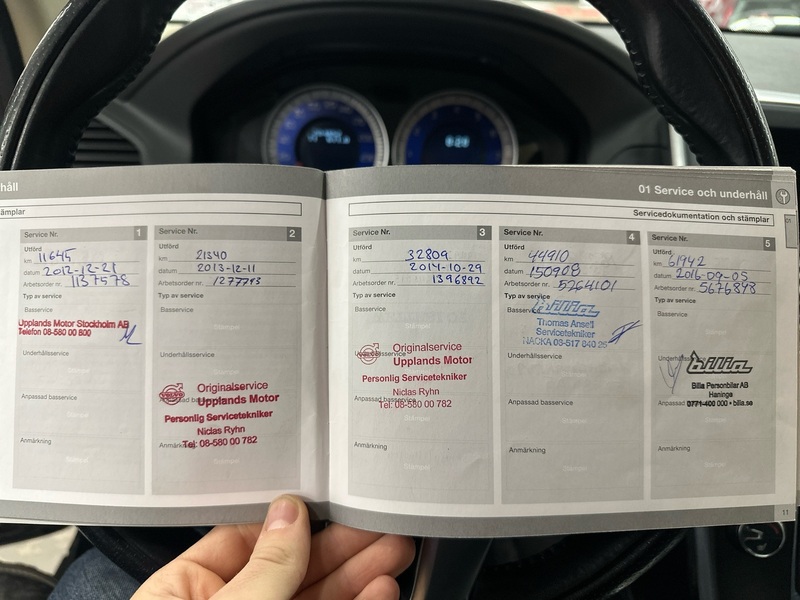 håll
01 Service och underhåll
stämplar
Servicedokumentation och stämplar
Service Nr. 1
Utförd
km 11645
datum 2012-12-21
Arbetsorder nr. 1137578
Typ av service
Basservice
Upplands Motor Stockholm AB
Telefon 08-580 00 800
Underhållsservice
Anpassad basservice
Anmärkning
Service Nr. 2
Utförd
km 21340
datum 2013-12-11
Arbetsorder nr. 1277743
Typ av service
Basservice
Stämpel
Underhållsservice
VOLVO
Originalservice
Upplands Motor
Personlig Servicetekniker
Niclas Ryhn
Anmärkning
Tel: 08-580 00 782
Stämpel
Service Nr. 3
Utförd
km 32809
datum 2014-10-29
Arbetsorder nr. 1396892
Typ av service
Basservice
Originalservice
Underhållsservice
Upplands Motor
Personlig Servicetekniker
Niclas Ryhn
Anpassad basservice
Tel: 08-580 00 782
Anmärkning
Stämpel
Service Nr. 4
Utförd
km 44910
datum 150908
Arbetsorder nr. 5264101
Typ av service
Basservice
bilia
Thomas Ansell
Servicetekniker
NACKA 08-517 840 25
Underhållsservice
Anpassad basservice
Stämpel
Anmärkning
Stämpel
Service Nr. 5
Utförd
km 61942
datum 2016-09-05
Arbetsorder nr. 5676848
Typ av service
Basservice
Stämpel
Underhållsservice
bilia
Bilia Personbilar AB
Haninge
Anpassad
0771-400 000 • bilia.se
Anmärkning
Stämpel
11